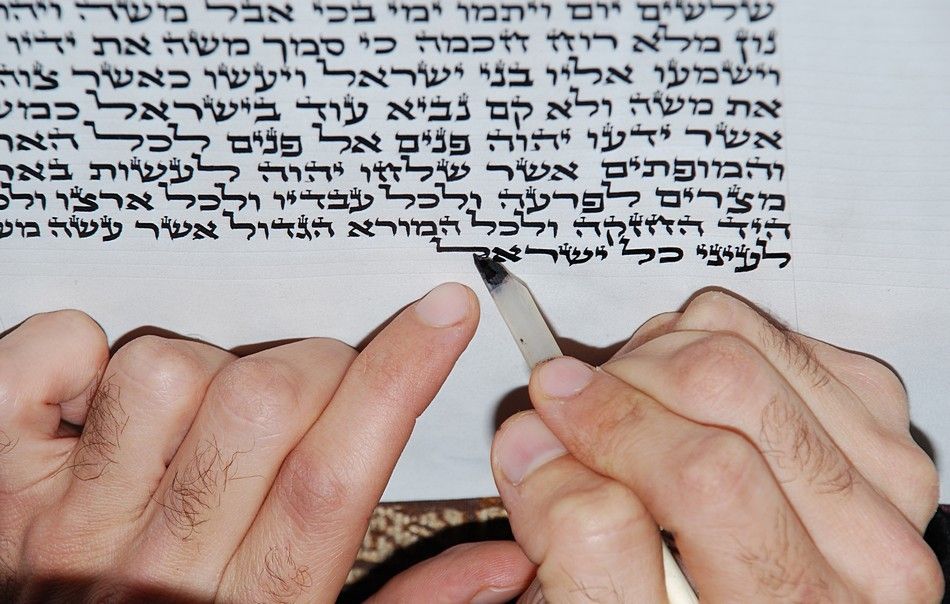 שלשים יום ויתמו ימי בכי אבל משה ויהו
נון מלא רוח חכמה כי סמך משה את ידיו
וישמעו אליו בני ישראל ויעשו כאשר צוה
את משה ולא קם נביא עוד בישראל כמש
אשר ידעו יהוה פנים אל פנים לכל האר
והמופתים אשר שלחו יהוה לעשות באר
מצרים לפרעה ולכל עבדיו ולכל ארצו ולכ
היד החזקה ולכל המורא הגדול אשר עשה מש
לעיני כל ישראל